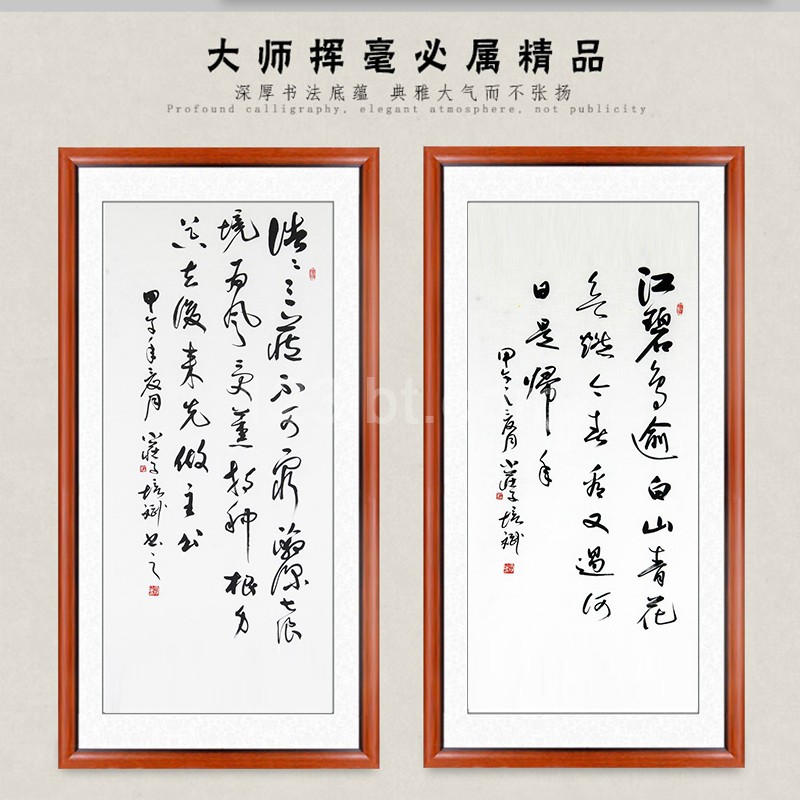 大师挥毫必属精品
深厚书法底蕴 典雅大气而不张扬
Profound calligraphy, elegant atmosphere, not publicity
浩浩三藏不可窮淵深七浪
境為風受薰持種根身
器去後来先做主公
甲午年夏月
培斌書之
江碧鸟逾白山青花
欲燃今春看又過何
日是帰年
甲午之夏月
培斌